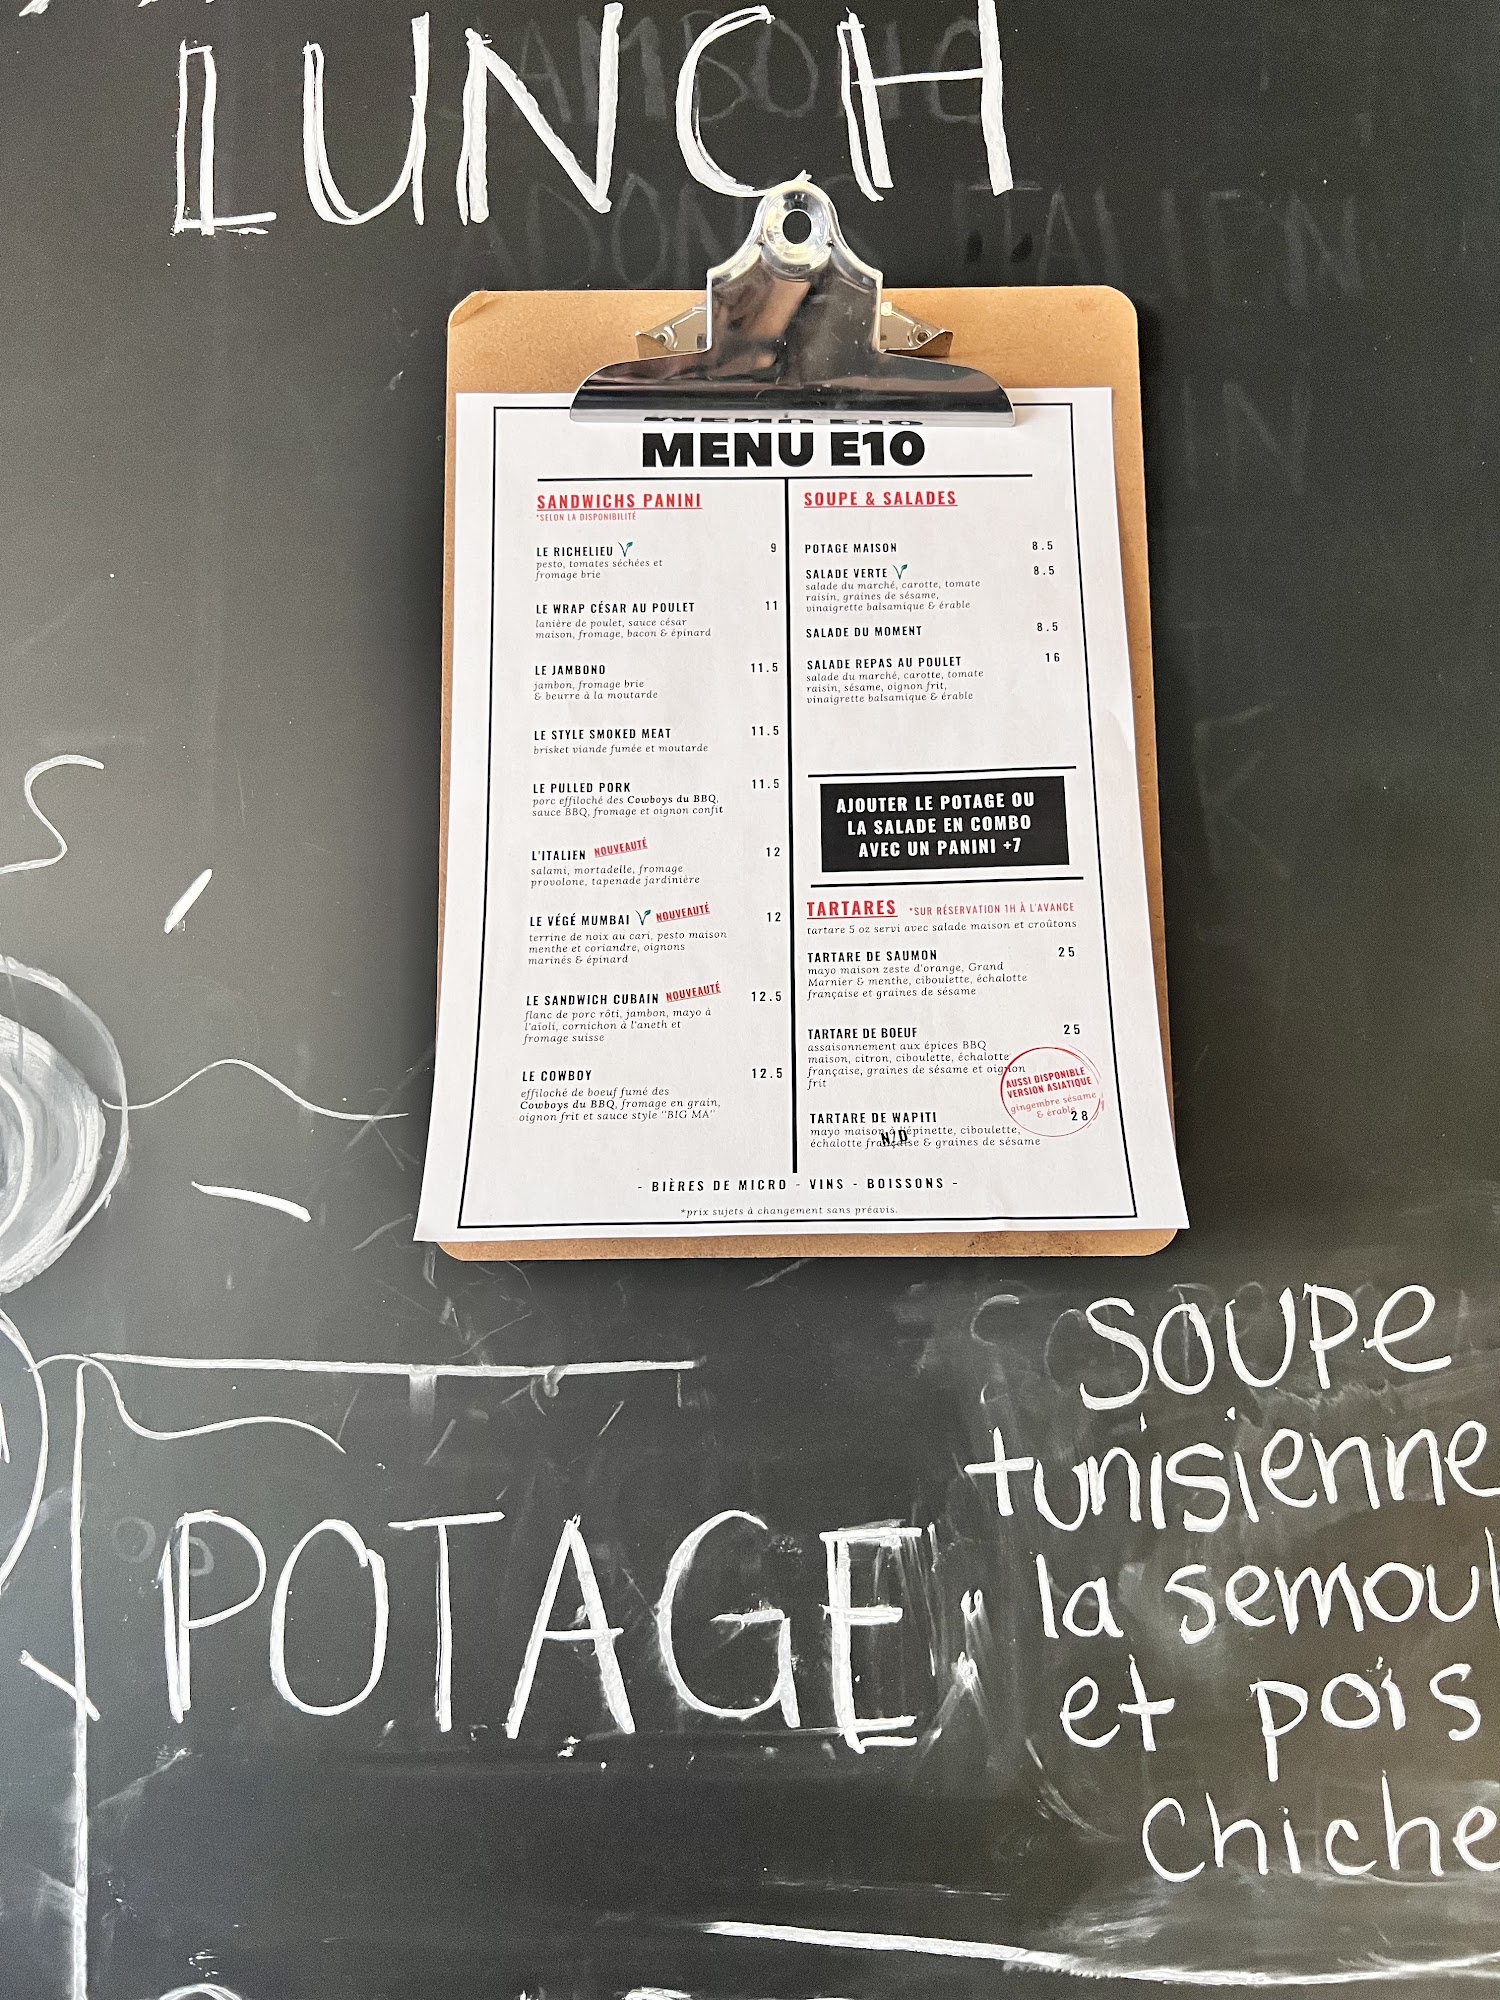 LUNCH
MENU E10
SANDWICHS PANINI
*SELON LA DISPONIBILITÉ
LE RICHELIEU 9
pesto, tomates séchées et
fromage brie
LE WRAP CÉSAR AU POULET 11
lanière de poulet, sauce césar
maison, fromage, bacon & épinard
LE JAMBONO 11.5
jambon, fromage brie
& beurre à la moutarde
LE STYLE SMOKED MEAT 11.5
brisket viande fumée et moutarde
LE PULLED PORK 11.5
porc effiloché des Cowboys du BBQ,
sauce BBQ, fromage et oignon confit
L'ITALIEN NOUVEAUTÉ 12
salami, mortadelle, fromage
provolone, tapenade jardinière
LE VÉGÉ MUMBAI NOUVEAUTÉ 12
terrine de noix au cari, pesto maison
menthe et coriandre, oignons
marinés & épinard
LE SANDWICH CUBAIN NOUVEAUTÉ 12.5
flanc de porc rôti, jambon, mayo à
l'aïoli, cornichon à l'aneth et
fromage suisse
LE COWBOY 12.5
effiloché de boeuf fumé des
Cowboys du BBQ, fromage en grain,
oignon frit et sauce style "BIG MA"
SOUPE & SALADES
POTAGE MAISON 8.5
SALADE VERTE 8.5
salade du marché, carotte, tomate
raisin, graines de sésame,
vinaigrette balsamique & érable
SALADE DU MOMENT 8.5
SALADE REPAS AU POULET 16
salade du marché, carotte, tomate
raisin, sésame, oignon frit,
vinaigrette balsamique & érable
AJOUTER LE POTAGE OU
LA SALADE EN COMBO
AVEC UN PANINI +7
TARTARES *SUR RÉSERVATION 1H À L'AVANCE
tartare 5 oz servi avec salade maison et croûtons
TARTARE DE SAUMON 25
mayo maison zeste d'orange, Grand
Marnier & menthe, ciboulette, échalotte
française et graines de sésame
TARTARE DE BOEUF 25
assaisonnement aux épices BBQ
maison, citron, ciboulette, échalotte
française, graines de sésame et oignon
frit
AUSSI DISPONIBLE
VERSION ASIATIQUE
gingembre sésame
& érable
TARTARE DE WAPITI 28
mayo maison à l'épinette, ciboulette,
échalotte française & graines de sésame
N/D
- BIÈRES DE MICRO - VINS - BOISSONS -
*prix sujets à changement sans préavis.
POTAGE:
SOUPE
tunisienne
la semoul
et pois
Chiche